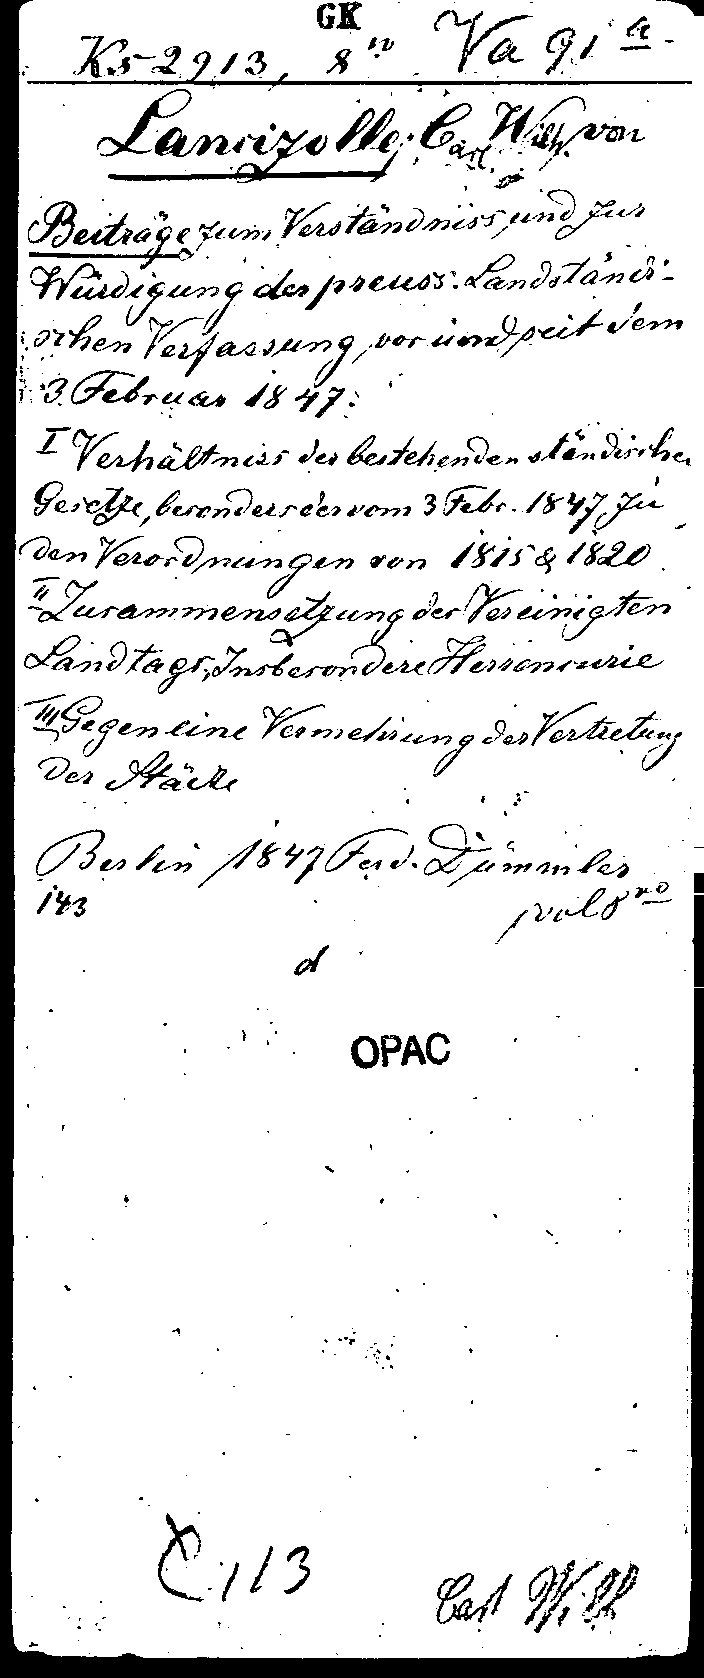 GK
Ks 2913, 8<sup>vo</sup> Va 91<sup>a</sup>
Lancizolle, Carl Wilh. von
Beiträge zum Verständniss und zur
Würdigung der preuss. Landständi-
schen Verfassung, vor und seit dem
3 Februar 1847:
I Verhältniss der bestehenden ständischen
Gesetze, besonders der vom 3 Febr. 1847, zu
den Verordnungen von 1815 & 1820
II Zusammensetzung der Vereinigten
Landtags, Insbesondere Herrencurie
III Gegen eine Vermehrung der Vertretung
der Städte
Berlin 1847 Ferd. Dümmler
143 vol 8<sup>vo</sup>
d
OPAC
C 113
Carl Wilh